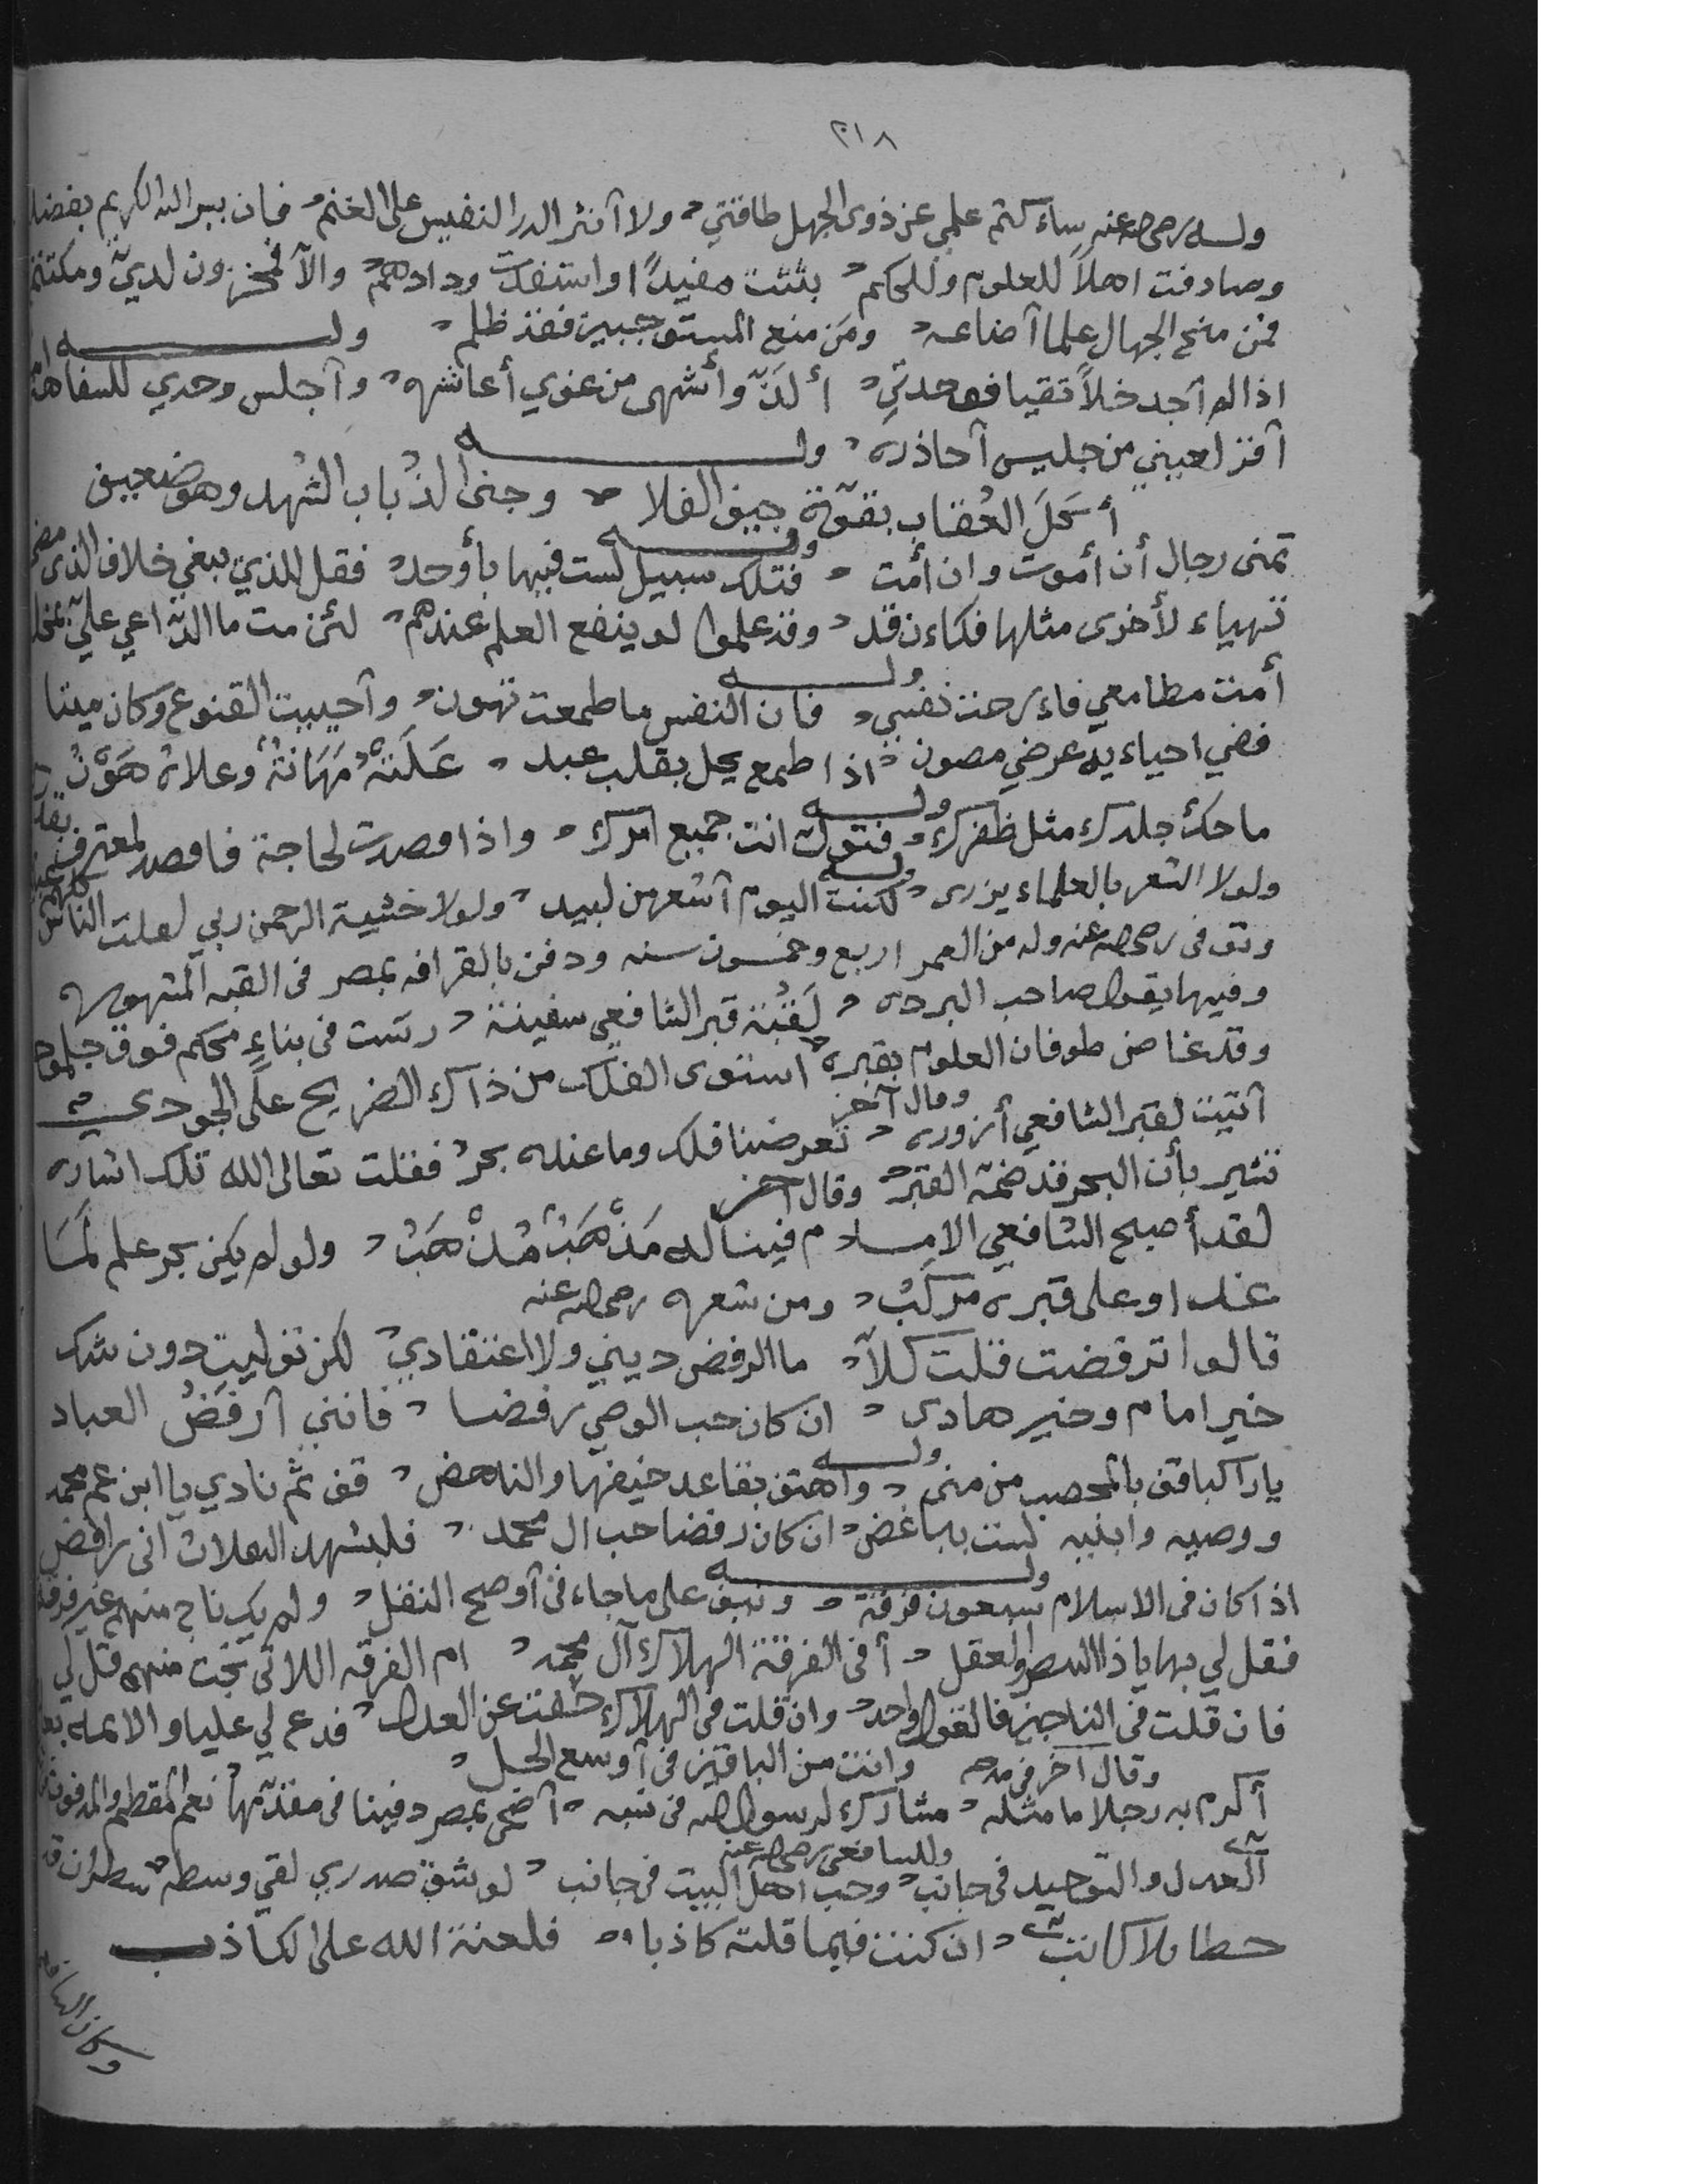 ٢١٨
وله رضي الله عنه ساءكتم علمي عن ذوى الجهل طاقتي ولا آنثر الدر النفيس على الغنم فان يسر الله الكريم بفضله
وصادفت اهلاً للعلوم وللحكم بثثت مفيداً واستفدت ودادهم والآ فمخزون لديّ ومكتتم
فمن منح الجهال علما آضاعه ومَن منع المستوجبين فقد ظلم وله
اذا لم آجد خلاً تقيا فوحدتي ألذّ وأشهى من غوي أعاشره وآجلس وحدي للسفاهة
آقز لعيني من جليس آحاذره وله
أكل العُقاب بقوّة جيف الفلا وجنى الذباب الشهد وهو ضعيف
وله
تمنى رجال أن أموت وان أمت فتلك سبيل لست فيها بأوحد فقل للذي يبغي خلاف الذى مضى
تهياء لأخرى مثلها فكاءن قد وقد علموا لو ينفع العلم عندهم لئن مت ما الداعي عليّ بمخلد
وله
أمت مطامعي فاءرحت نفسي فان النفس ما طمعت تهون وآحييت القنوع وكان ميتا
ففي احياءيه عرضي مصون اذا طمع يحل بقلب عبد عَلَتهُ مَهَانَةٌ وعلاه هَوْنُ
وله
ما حكّ جلدك مثل ظفرك فتولّ انت جميع امرك واذا قصدت لحاجة فاقصد لمعترف بقدرك
وله
ولولا الشعر بالعلماء يزرى لكنت اليوم آشعر من لبيد ولولا خشية الرحمن ربي لعلت الناس كلهم
وتوفى رضي الله عنه وله من العمر اربع وخمسون سنه ودفن بالقرافه بمصر فى القبه المشهوره
وفيها يقول صاحب البرده لَقُبّة قبر الشافعي سفينة رست فى بناءٍ محكم فوق جلمود
وقد غاض طوفان العلوم بقبره استوى الفلك من ذاك الضريح على الجودي
وقال آخر
آتيت لقبر الشافعي أزوره تعرضنا فلك وما عنده بحرُ فقلت تعالى الله تلك اشاره
تشير بأن البحر قد ضمّه القبر وقال آخر
لقد أصبح الشافعي الامام فينا له مَذْهَبٌ مُذْهَبُ ولو لم يكن بحر علم لمَا
غدا وعلى قبره مركَبُ ومن شعره رضي الله عنه
قالوا ترفضت قلت كلآ ما الرفض ديني ولا اعتقادي لكن توليت دون شك
خير امام وخير هادي ان كان حب الوصي رفضا فانني آرفَضُ العباد
وله
يا راكبا قف بالمحصب من منى واهتف بقاعد خيفها والناهض قف ثم نادي يا ابن عم محمد
ووصيه وابنيه لست بباغض ان كان رفضا حب ال محمد فليشهد الثقلان انى رافض
وله
اذا كان فى الاسلام سبعون فرقة ونيف على ما جاء فى آوضح النقل ولم يك ناج منهم غير فرقة
فقل لي بها يا ذا البصر والعقل آفى الفرقة الهلاك آل محمد ام الفرقه اللاتى نجت منهم قل لي
فان قلت فى الناجين فالقول واحد وان قلت فى الهلاك حفت عن العدل فدع لي عليا والايمه بعده
وانت من الباقين فى آوسع الحل وقال آخر فى مدحه
أكرم به رجلا ما مثله مشارك لرسول الله فى نسبه آضحى بمصر دفينا فى مقطّمها نعم المقطم والمدفون
وللشافعي رضي الله عنه
آلعدل والتوحيد فى جانب وحب اهل البيت فى جانب لو شق صدري لقي وسطه سطران قد
خطا بلا كاتب ان كنت فيما قلته كاذبا فلعنة الله على الكاذب
وكان الشافعي